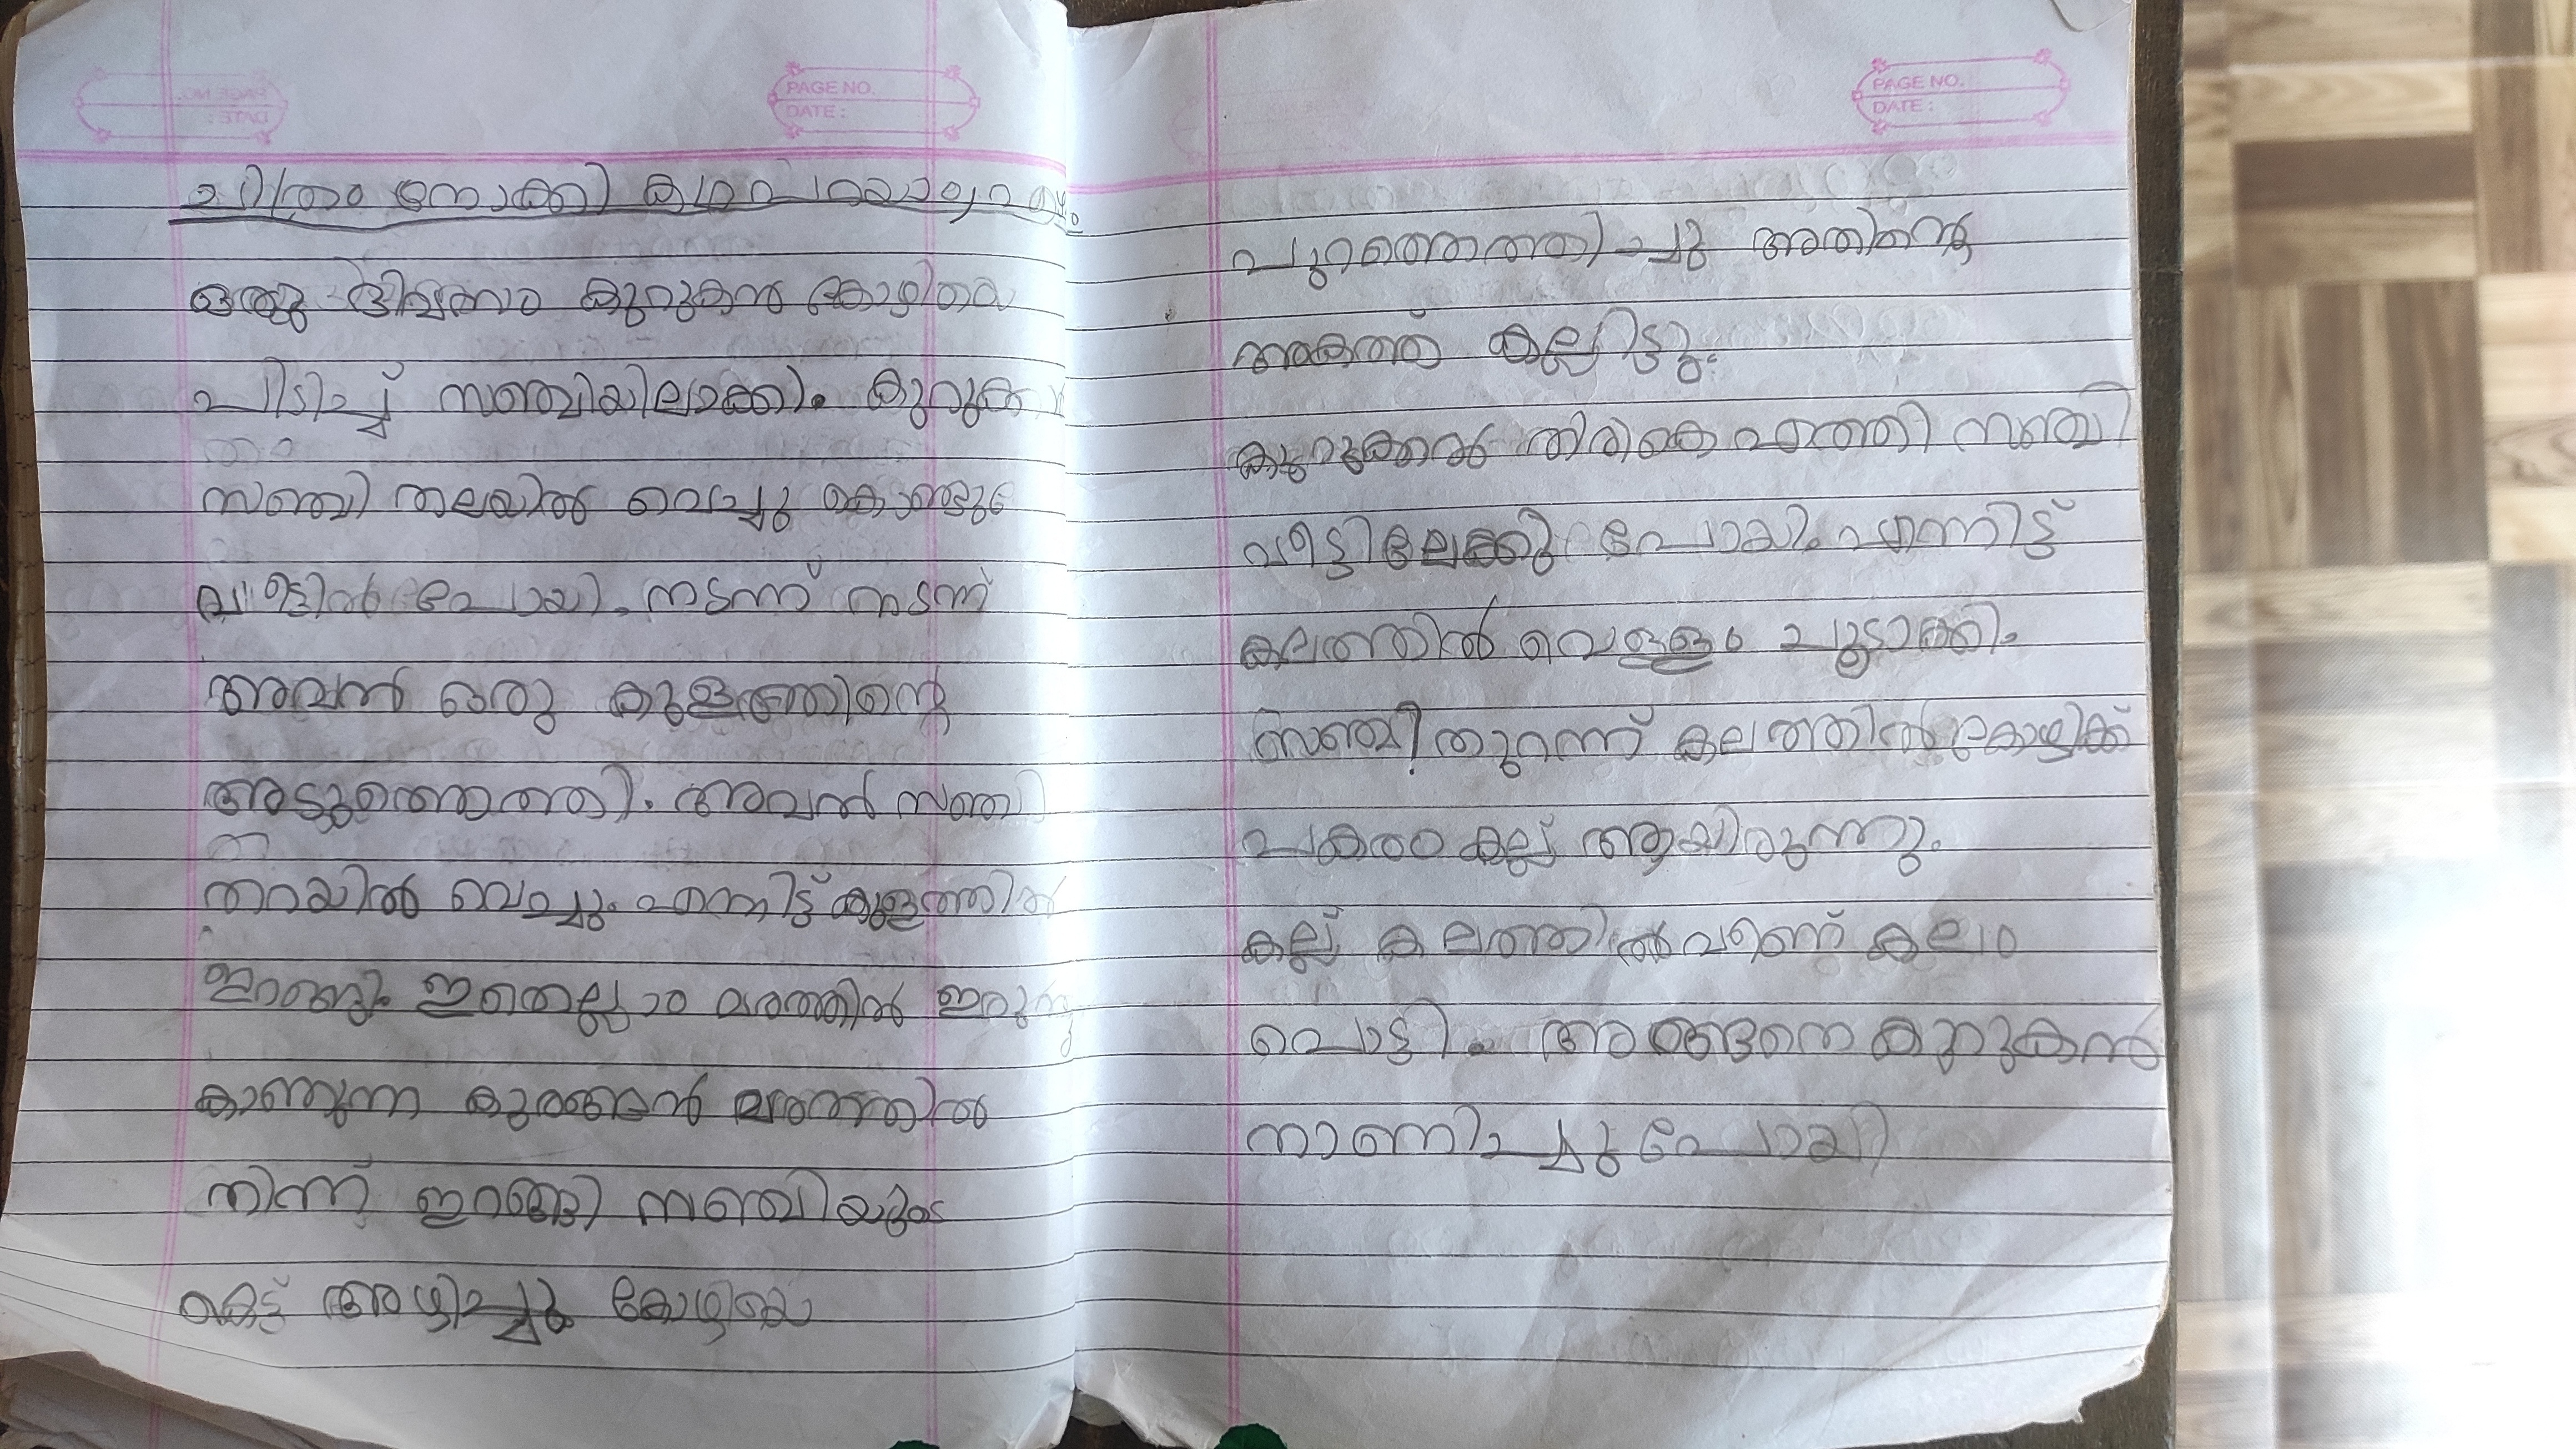 PAGE NO.
DATE :
ചിത്രം നോക്കി കഥ പറയാം
ഒരു ദിവസം കുറുകൻ കോഴിയെ
പിടിച്ച് സഞ്ചിയിലാക്കി. കുറുക
സഞ്ചി തലയിൽ വെച്ചു കൊണ്ടു
വീട്ടിൽ പോയി. നടന്ന് നടന്ന്
അവൻ ഒരു കുളത്തിന്റെ
അടുത്തെത്തി. അവൻ സഞ്ചി
തറയിൽ വെച്ചു. എന്നിട്ട് കുളത്തിൽ
ഇറങ്ങി. ഇതെല്ലാം മരത്തിൽ ഇരുന്നു
കാണുന്ന കുരങ്ങൻ മരത്തിൽ
നിന്ന് ഇറങ്ങി സഞ്ചിയുടെ
കെട്ട് അഴിച്ചു കോഴിയെ
PAGE NO.
DATE :
പുറത്തെത്തിച്ചു അതിന്റെ
അകത്ത് കല്ലിട്ടു.
കുറുക്കൻ തിരികെ എത്തി സഞ്ചി
വീട്ടിലേക്കു പോയി. എന്നിട്ട്
കലത്തിൽ വെള്ളം ചൂടാക്കി.
സഞ്ചി തുറന്ന് കലത്തിൽ കോഴിക്ക്
പകരം കല്ല് ആയിരുന്നു.
കല്ല് കലത്തിൽ വീണ് കലം
പൊട്ടി. അങ്ങനെ കുറുകൻ
നാണിച്ചു പോയി